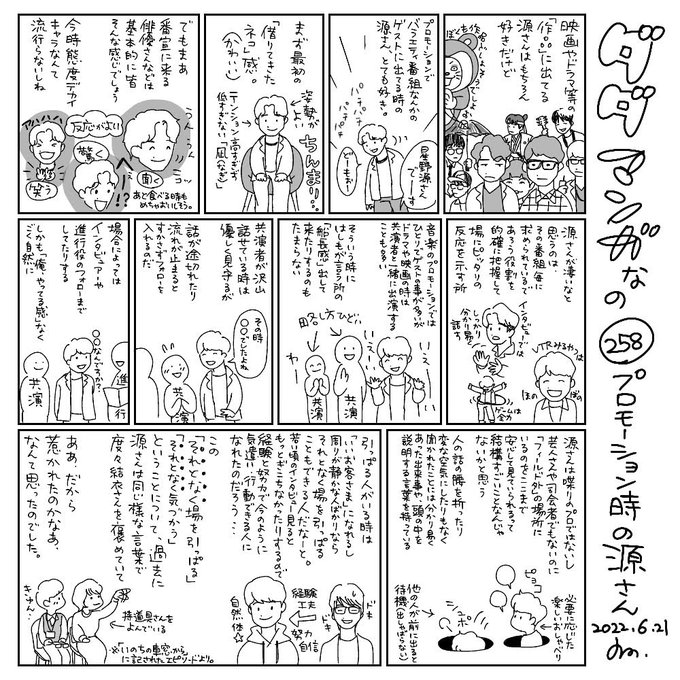 ダダ
マンガなの
258
プロモーション時の源さん
2022.6.21
映画やドラマ等の
「作品」に出てる
源さんはもちろん
好きだけど
プロモーションで
バラエティ番組なんかの
ゲストに出てる時の
源さん、とても好き。
星野源さん
でーす
どーもー
パチパチ
まず最初の
「借りてきた
ネコ」感
(かわいい)
姿勢が
よい
ちんまり…
テンション高すぎず
低すぎない「凪な感じ」
でもまあ
番宣に来る
俳優さんなどは
基本的に皆
そんな感じでしょう
今時態度デカイ
キャラなんて
流行らないしね
うんうん
反応がよい
驚く
笑う
聞く
コッ
あと食べる時も
めちゃおいしそう。
源さんが凄いなと
思うのは
その番組毎に
求められているで
あろう役割を
的確に把握して
場にピッタリの
反応を示す所
インタビューでは
しっかり
分かり易く
話す
VTRみるやつは
ほの
ぼの
ゲームは
全力
音楽のプロモーションでは
ひとりでゲストの事が多いが
ドラマや映画の時は
共演者と一緒に出演する
こともある
そういう時に
はしもが言う所の
「組長感」出して
来たりするのも
たまらない
略し方ひどい
いえーい
いえーい
わー
共演
共演
共演者が沢山
話せている時は
優しく見守るが
話が途切れたり
流れが止まると
すかさずフォローを
入れるのだ
その時
○○でしたよね
共演
場合によっては
インタビュアーや
進行役のフォローまで
してたりする
しかも「俺、やってる感」なく
ごく自然に
○○なんですか?
共演
進行
源さんは喋りのプロではないし
芸人さんや司会者でもないのに
「フィールド外」の場所に
いるのをここまで
安心して見ていられるって
結構すごいことなんじゃ
ないかと思う
人の話の腰を折ったり
変な空気にしたりもなく
聞かれたことには分かり易く
あった出来事や、頭の中を
説明する言葉を持っている
必要に応じた
楽しいおしゃべり
ピョコ
他の人が前に出ると
待機(出しゃばらない)
引っぱる人がいる時は
「いいお客さま」になれるし
周りが静かな人ばかりなら
それとなく場を引っぱる
こともできる人だなーと。
若い頃のインタビュー見ると
もっとぎこちなかったりするので
経験と努力で今のように
気遣い・行動できる人に
なれたのだろう…
ドキ
ドキ
経験
工夫
努力
自信
自然体☆
この
「それとなく場を引っぱる」
「それとなく気づかう」
ということについて、過去に
源さんは同じ様な言葉で
度々結衣さんを褒めていて
ああ、だから
惹かれたのかなあ、
なんて思ったのでした。
きゅん…
持道具さんを
よんでいる
※「いのちの車窓から」
に記されたエピソードより。